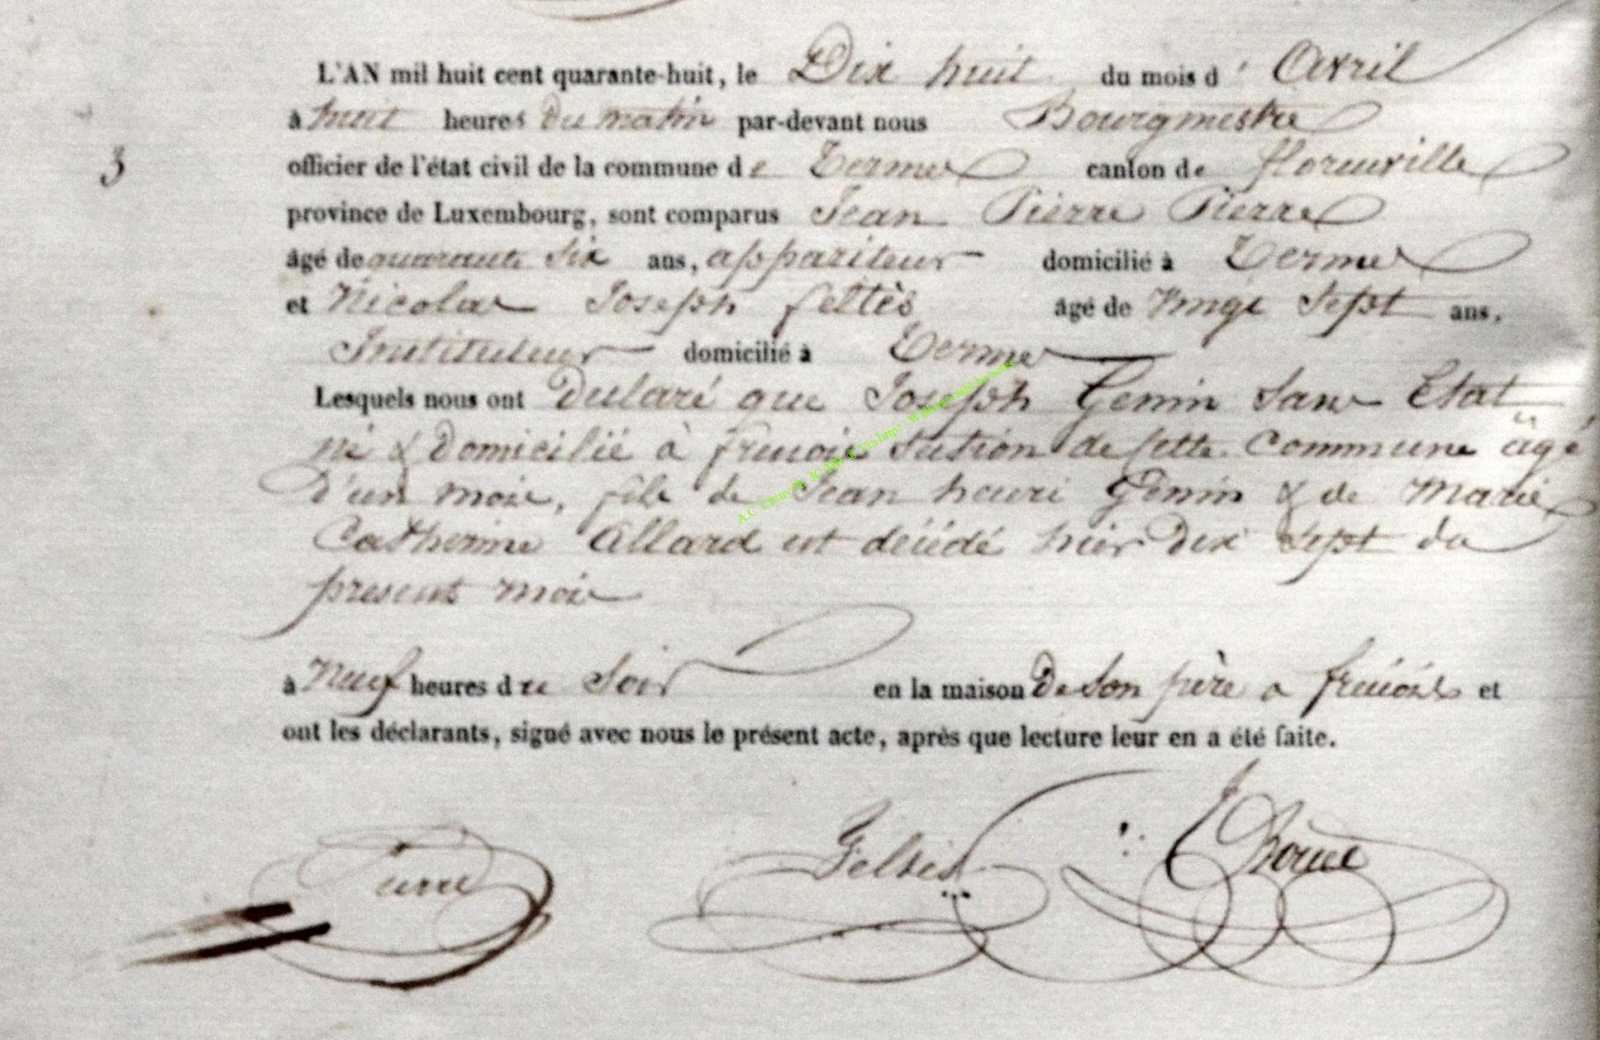 L'AN mil huit cent quarante-huit, le Dix huit du mois d' Avril
à huit heures Du matin par-devant nous Bourgmestre
3 officier de l'état civil de la commune de Termes canton de florenville
province de Luxembourg, sont comparus Jean Pierre Pierre
âgé de quarante Six ans, appariteur domicilié à Termes
et Nicolas Joseph feltès âgé de Vingt Sept ans,
Instituteur domicilié à Termes
Lesquels nous ont Déclaré que Joseph Genin Sans Etat
né & Domicilié à frenois section de cette Commune âgé
D'un mois, fils de Jean henri Genin & de Marie
Catherine Allard est décédé hier Dix Sept du
présent mois
à Neuf heures du Soir en la maison De Son père a frenois et
ont les déclarants, signé avec nous le présent acte, après que lecture leur en a été faite.
Pierre Feltès